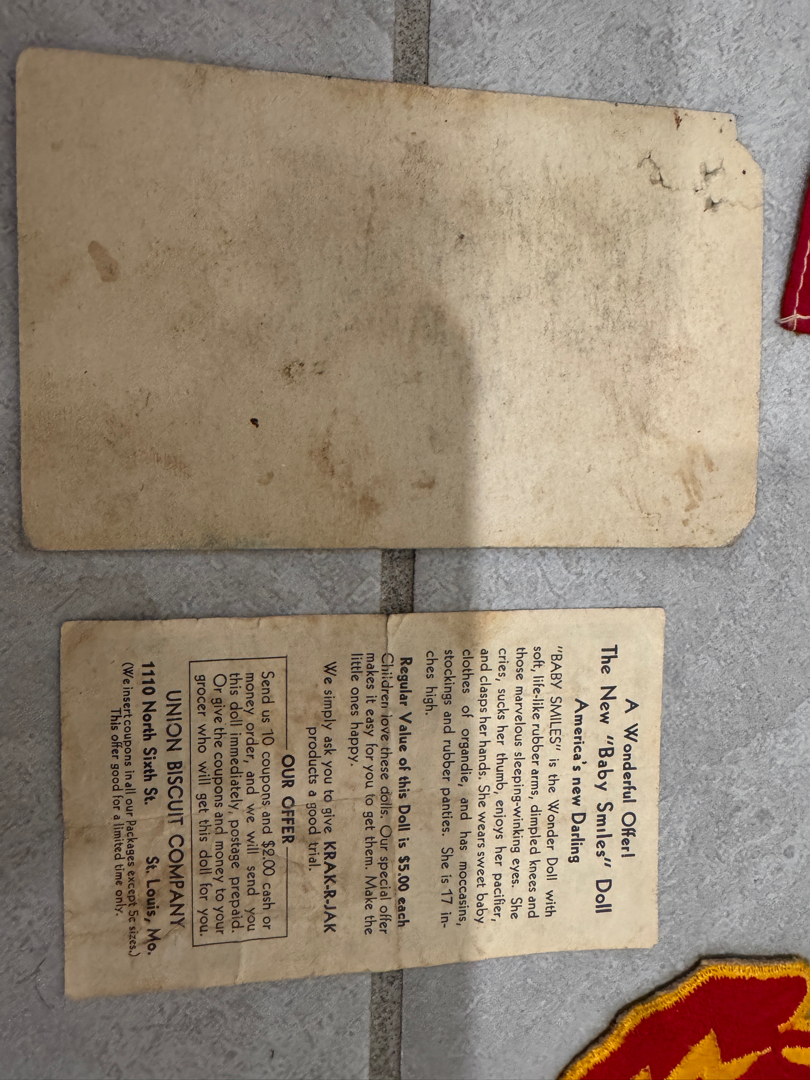 A Wonderful Offer!
The New "Baby Smiles" Doll
America's new Darling
"BABY SMILES" is the Wonder Doll with
soft, life-like rubber arms, dimpled knees and
those marvelous sleeping-winking eyes. She
cries, sucks her thumb, enjoys her pacifier,
and clasps her hands. She wears sweet baby
clothes of organdie, and has moccasins,
stockings and rubber panties. She is 17 in-
ches high.
Regular Value of this Doll is $5.00 each
Children love these dolls. Our special offer
makes it easy for you to get them. Make the
little ones happy.
We simply ask you to give KRAK-R-JAK
products a good trial.
OUR OFFER
Send us 10 coupons and $2.00 cash or
money order, and we will send you
this doll immediately, postage prepaid.
Or give the coupons and money to your
grocer who will get this doll for you.
UNION BISCUIT COMPANY
1110 North Sixth St. St. Louis, Mo.
(We insert coupons in all our Packages except 5c sizes.)
This offer good for a limited time only.